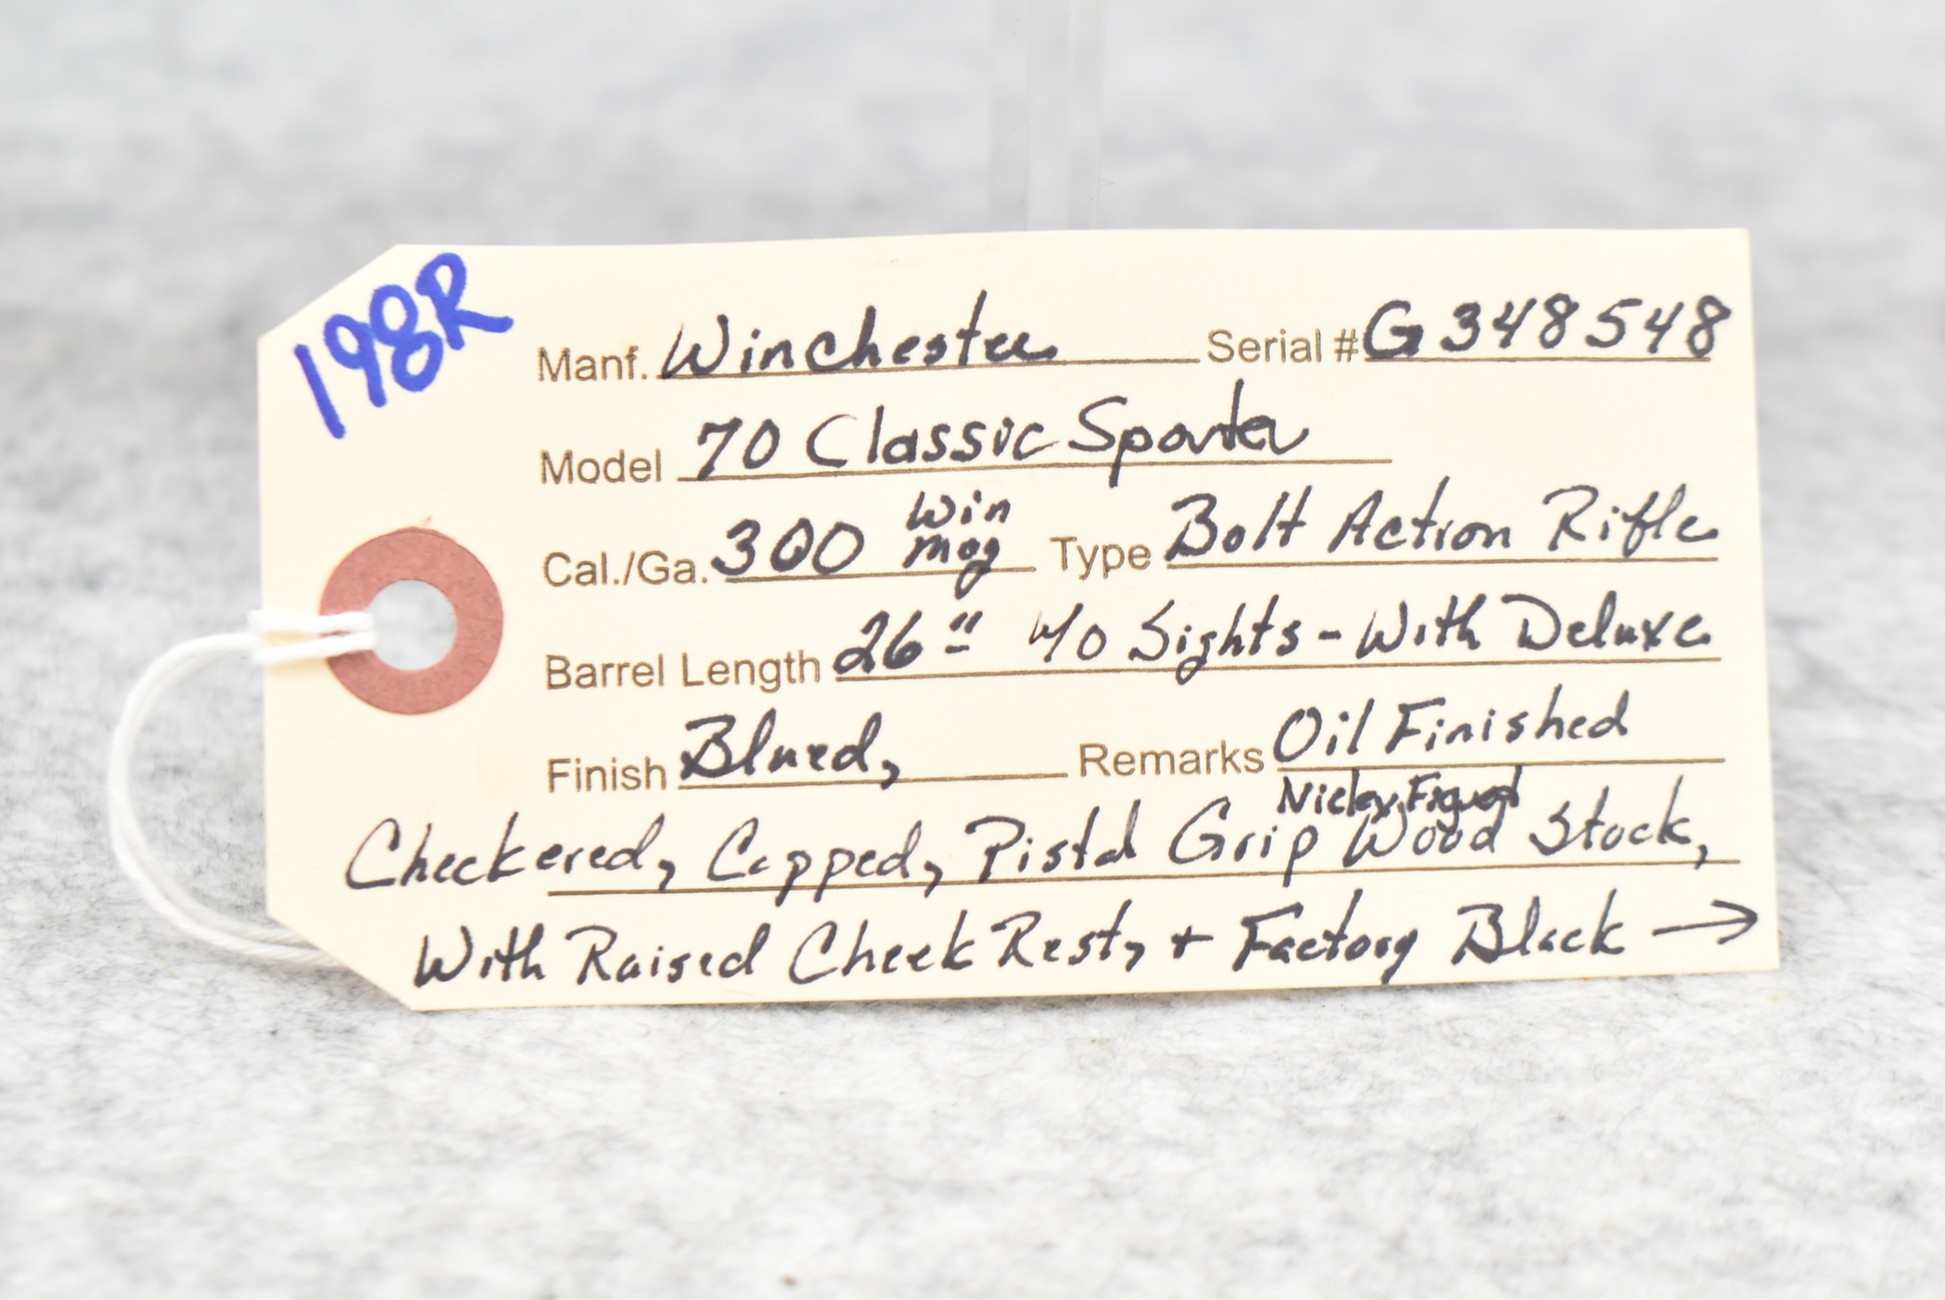 198R
Manf. Winchester Serial # G348548
Model 70 Classic Sporter
Cal./Ga. 300 Win Mag Type Bolt Action Rifle
Barrel Length 26" W/O Sights - With Deluxe
Finish Blued, Remarks Oil Finished
Nicley Figured
Checkered, Capped, Pistol Grip Wood Stock,
With Raised Cheek Rest, + Factory Black →